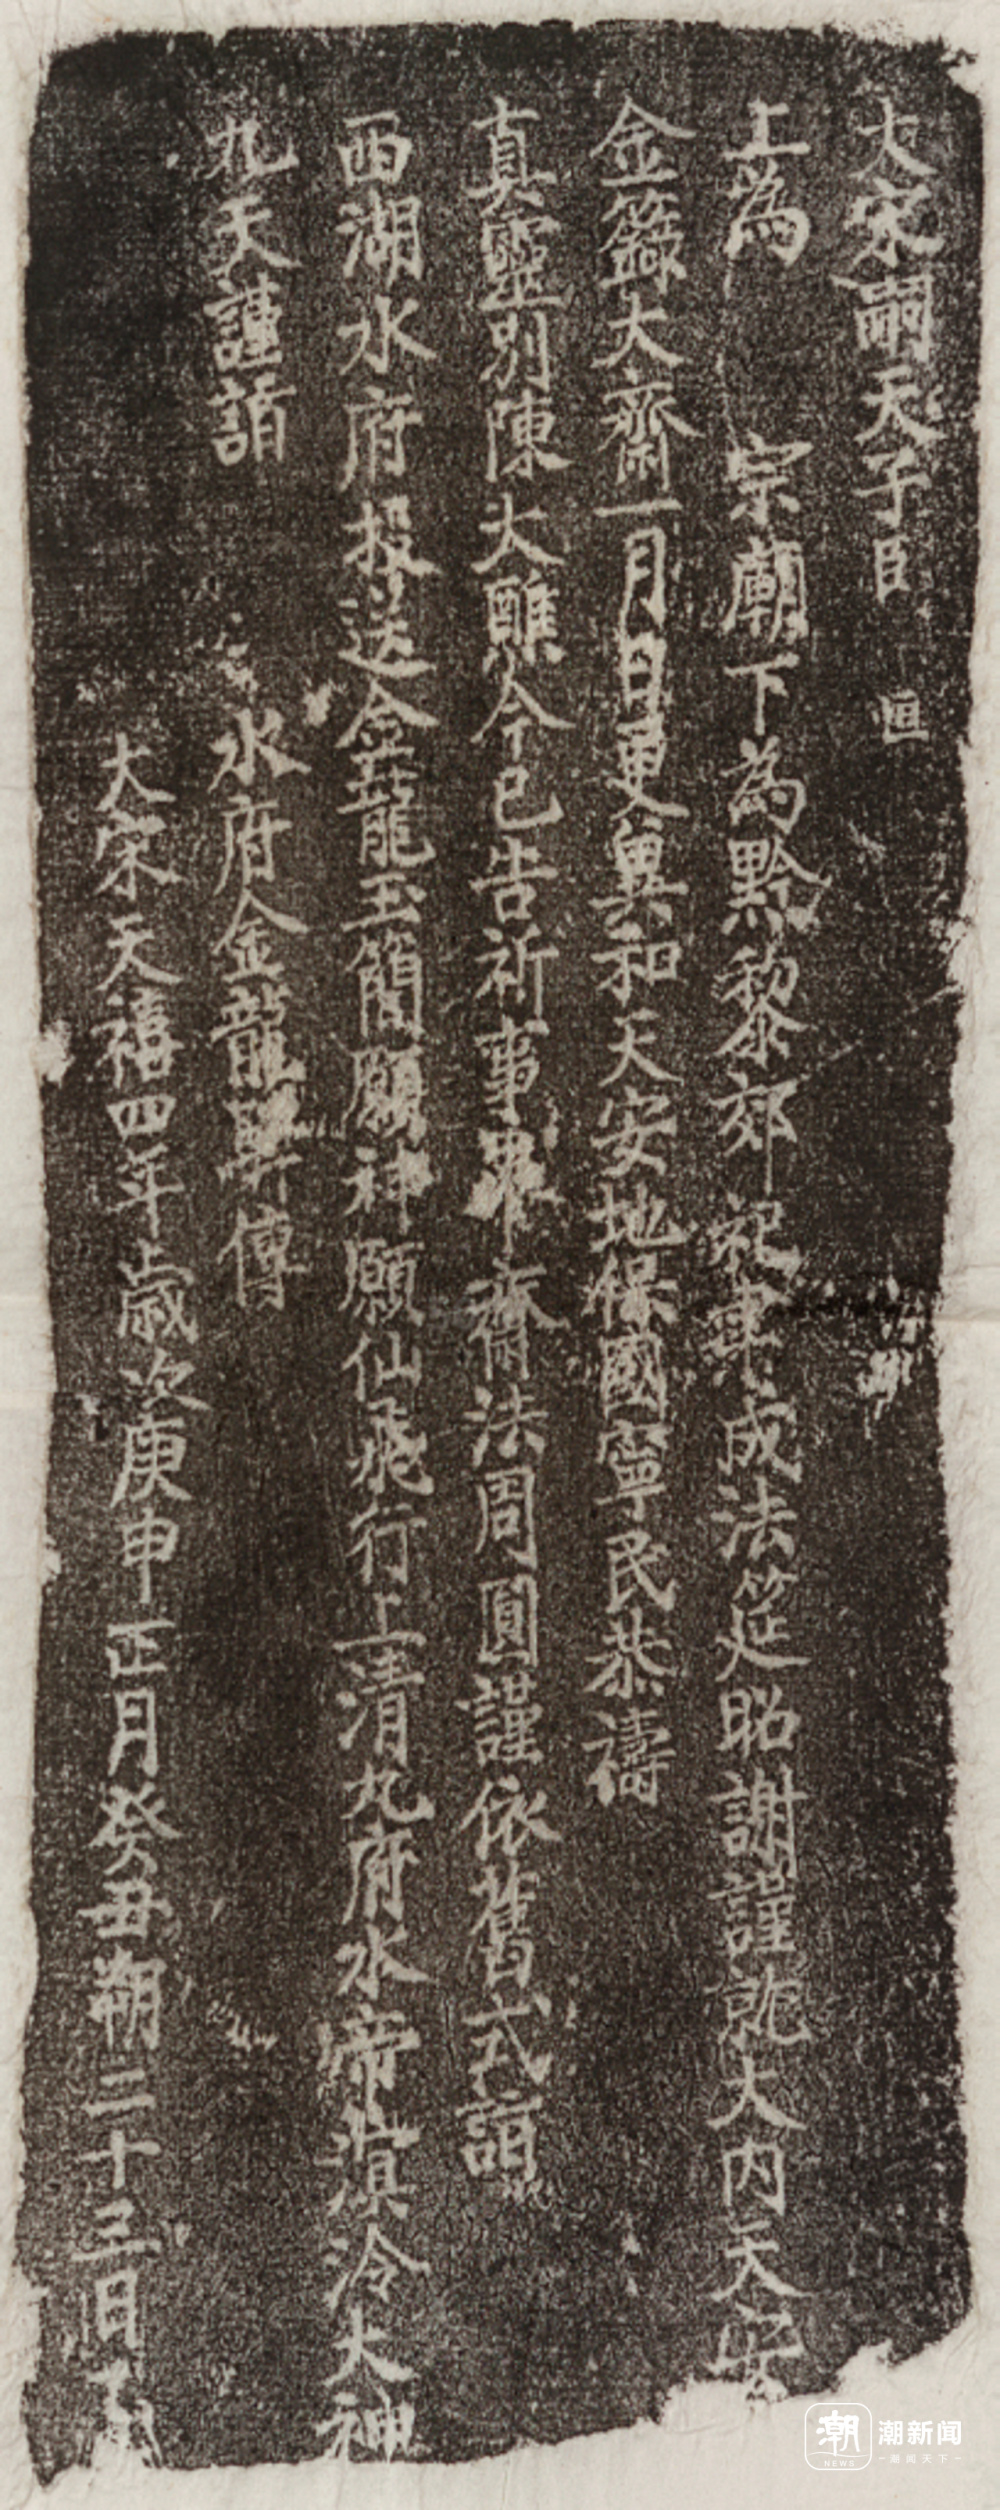 大宋嗣天子臣 恒
上為 宗廟下為黔黎郊祀畢成法筵昭謝謹就大内天安
金籙大齋一月日更異和天安地保國寧民恭禱
真靈別陳大醮今已告祈事畢齋法周圓謹依舊式詣
西湖水府投送金龍玉簡願神願仙飛行上清九府水帝洪泠大神
九天謹詣 水府金龍驛傳
大宋天禧四年歲次庚申正月癸丑朔二十三日
潮
NEWS
潮新闻